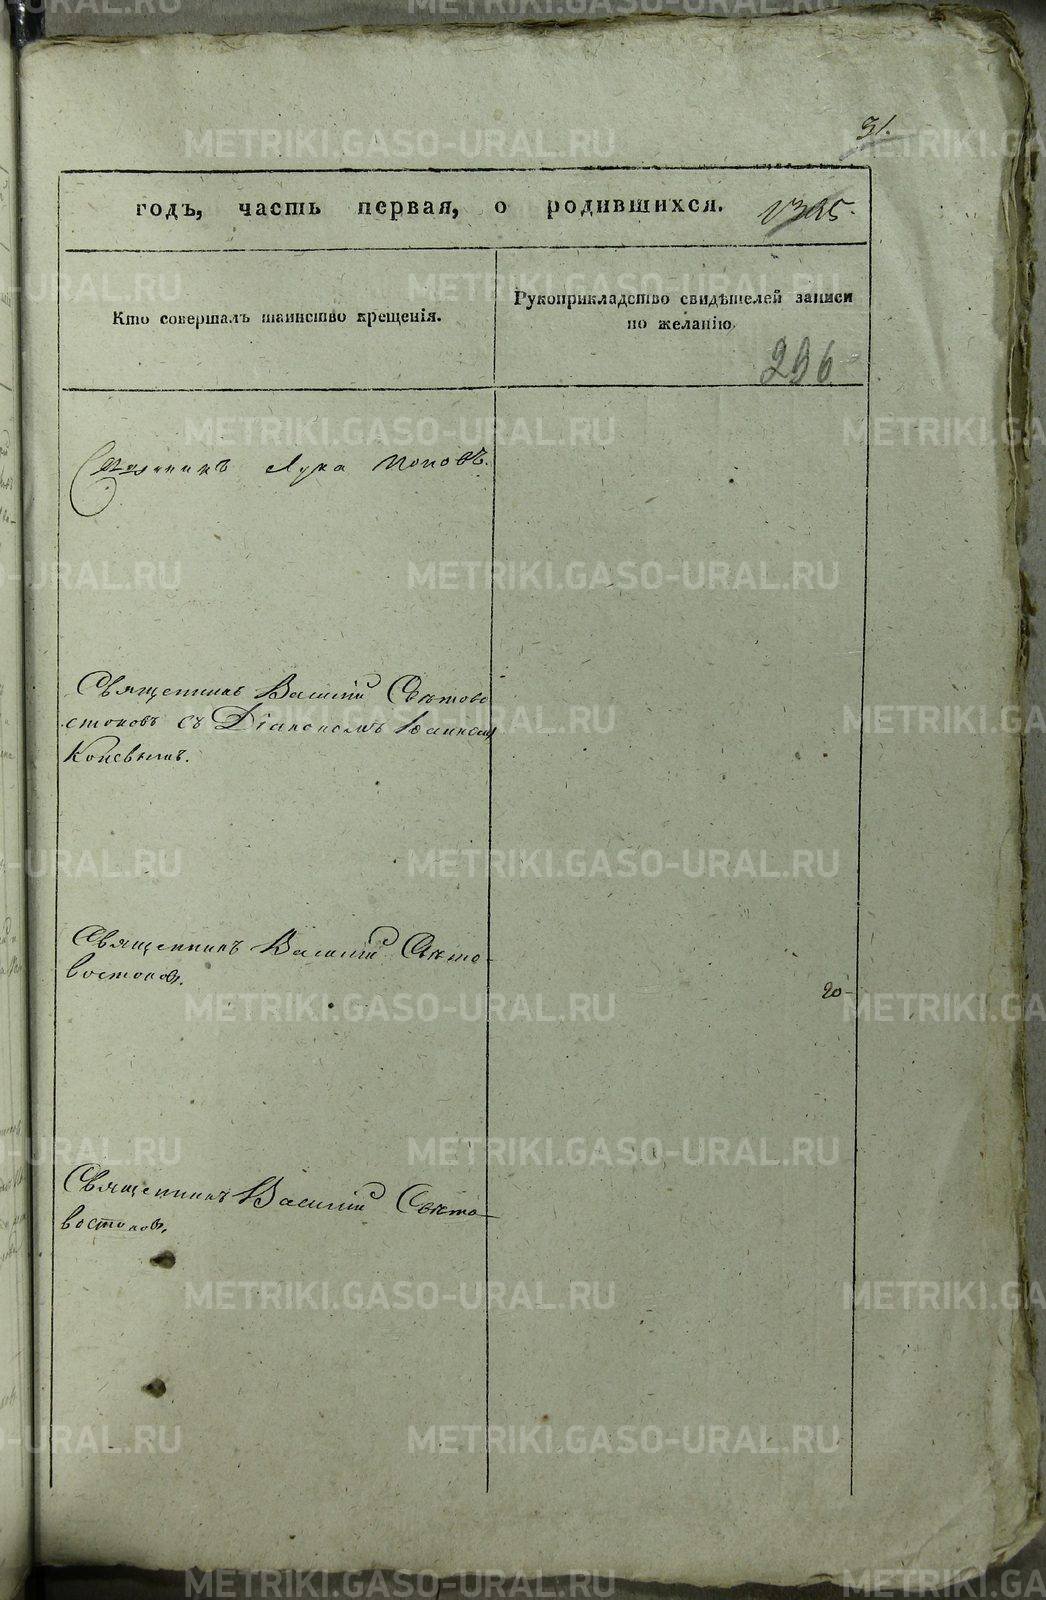 31.
годъ, часть первая, о родившихся.
Кто совершалъ таинство крещенія.
Рукоприкладство свидѣтелей записи
по желанію.
296
Лука Поповъ.
Священникъ Василій Свѣтово
стоковъ съ Діакономъ Іоанномъ
Коневымъ.
Священникъ Василій Свѣто-
востоковъ.
20-
Священникъ Василій Свѣто-
востоковъ.
METRIKI.GASO-URAL.RU